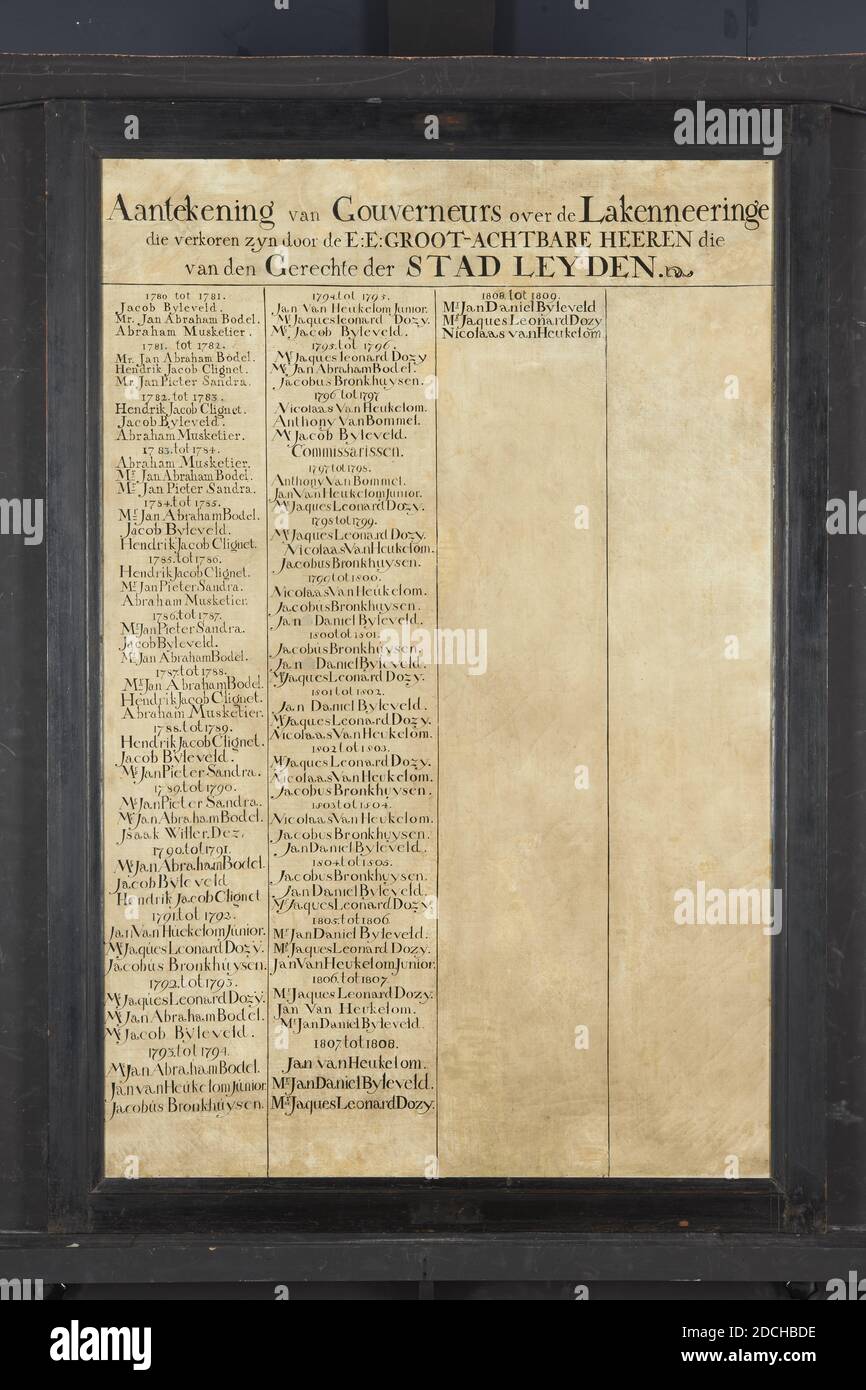 Aantekening van Gouverneurs over de Lakenneeringe
die verkoren zyn door de E:E: GROOT-ACHTBARE HEEREN die
van den Gerechte der STAD LEYDEN.
1780 tot 1781.
Jacob Byleveld.
Mr. Jan Abraham Bodel.
Abraham Musketier.
1781. tot 1782.
Mr. Jan Abraham Bodel.
Hendrik Jacob Clignet.
Mr. Jan Pieter Sandra.
1782. tot 1783.
Hendrik Jacob Clignet.
Jacob Byleveld.
Abraham Musketier.
1783. tot 1784.
Abraham Musketier.
Mr. Jan Abraham Bodel.
Mr. Jan Pieter Sandra.
1784. tot 1785.
Mr. Jan Abraham Bodel.
Jacob Byleveld.
Hendrik Jacob Clignet.
1785. tot 1786.
Hendrik Jacob Clignet.
Mr. Jan Pieter Sandra.
Abraham Musketier.
1786. tot 1787.
Mr. Jan Pieter Sandra.
Jacob Byleveld.
Mr. Jan Abraham Bodel.
1787. tot 1788.
Mr. Jan Abraham Bodel.
Hendrik Jacob Clignet.
Abraham Musketier.
1788. tot 1789.
Hendrik Jacob Clignet.
Jacob Byleveld.
Mr. Jan Pieter Sandra.
1789. tot 1790.
Mr. Jan Pieter Sandra.
Mr. Jan Abraham Bodel.
Jsaak
1790. tot 1791.
Mr. Jan Abraham Bodel.
Jacob Byleveld
Hendrik Jacob Clignet
1791. tot 1792.
Jan Van Huekelom Junior.
Mr. Jaques Leonard Dozy.
Jacobus Bronkhuysen.
1792. tot 1793.
Mr. Jaques Leonard Dozy.
Mr. Jan Abraham Bodel.
Mr. Jacob Byleveld.
1793. tot 1794.
Mr. Jan Abraham Bodel.
Jan van Heukelom Junior.
Jacobus Bronkhuysen.
1794. tot 1795.
Jan Van Heukelom Junior.
Mr. Jaques leonard Dozy.
Mr. Jacob Byleveld.
1795. tot 1796.
Mr. Jaques leonard Dozy
Mr. Jan Abraham Bodel.
Jacobus Bronkhuysen.
1796 tot 1797
Nicolaas Van Heukelom.
Anthony Van Bommel.
Mr. Jacob Byleveld.
Commissarissen.
1797 tot 1798.
Anthony Van Bommel.
Jan Van Heukelom Junior.
Mr. Jaques Leonard Dozy.
1798 tot 1799.
Mr. Jaques Leonard Dozy.
Nicolaas Van Heukelom.
Jacobus Bronkhuysen.
1799 tot 1800.
Nicolaas Van Heukelom.
Jacobus Bronkhuysen.
Jan Daniel Byleveld.
1800 tot 1801.
Jacobus Bronkhuysen.
Jan Daniel Byleveld.
Mr. Jaques Leonard Dozy.
1801 tot 1802.
Jan Daniel Byleveld.
Mr. Jaques Leonard Dozy.
Nicolaas Van Heukelom.
1802 tot 1803.
Mr. Jaques Leonard Dozy.
Nicolaas Van Heukelom.
Jacobus Bronkhuysen.
1803. tot 1804.
Nicolaas Van Heukelom.
Jacobus Bronkhuysen.
Jan Daniel Byleveld.
1804. tot 1805.
Jacobus Bronkhuysen.
Jan Daniel Byleveld.
Mr. Jaques Leonard Dozy.
1805. tot 1806.
Mr. Jan Daniel Byleveld.
Mr. Jaques Leonard Dozy.
Jan Van Heukelom Junior.
1806. tot 1807
Mr. Jaques Leonard Dozy.
Jan Van Heukelom.
Mr. Jan Daniel Byleveld.
1807 tot 1808.
Jan van Heukelom.
Mr. Jan Daniel Byleveld.
Mr. Jaques Leonard Dozy.
1808. tot 1809.
Mr. Jan Daniel Byleveld
Mr. Jaques Leonard Dozy
Nicolaas van Heukelom
alamy
alamy
alamy
Image ID: 2DCHBDE
www.alamy.com